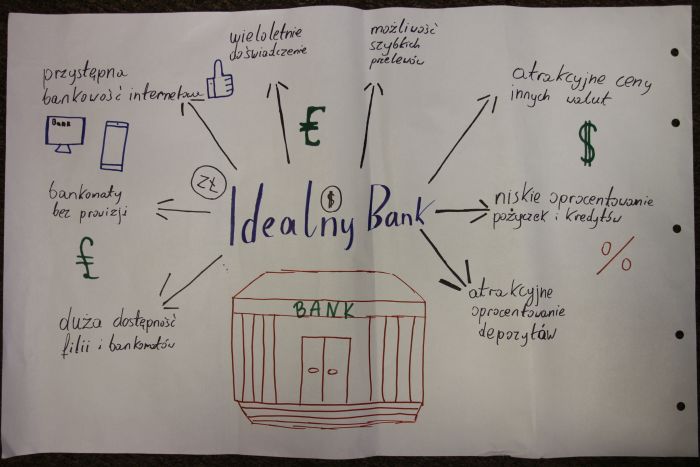 wieloletnie
doświadczenie
możliwość
szybkich
przelewów
przystępna
bankowość internetowa
Bank
atrakcyjne ceny
innych walut
€
$
zł
$
Idealny Bank
bankomaty
bez prowizji
£
niskie oprocentowanie
pożyczek i kredytów
%
duża dostępność
filii i bankomatów
BANK
atrakcyjne
oprocentowanie
depozytów